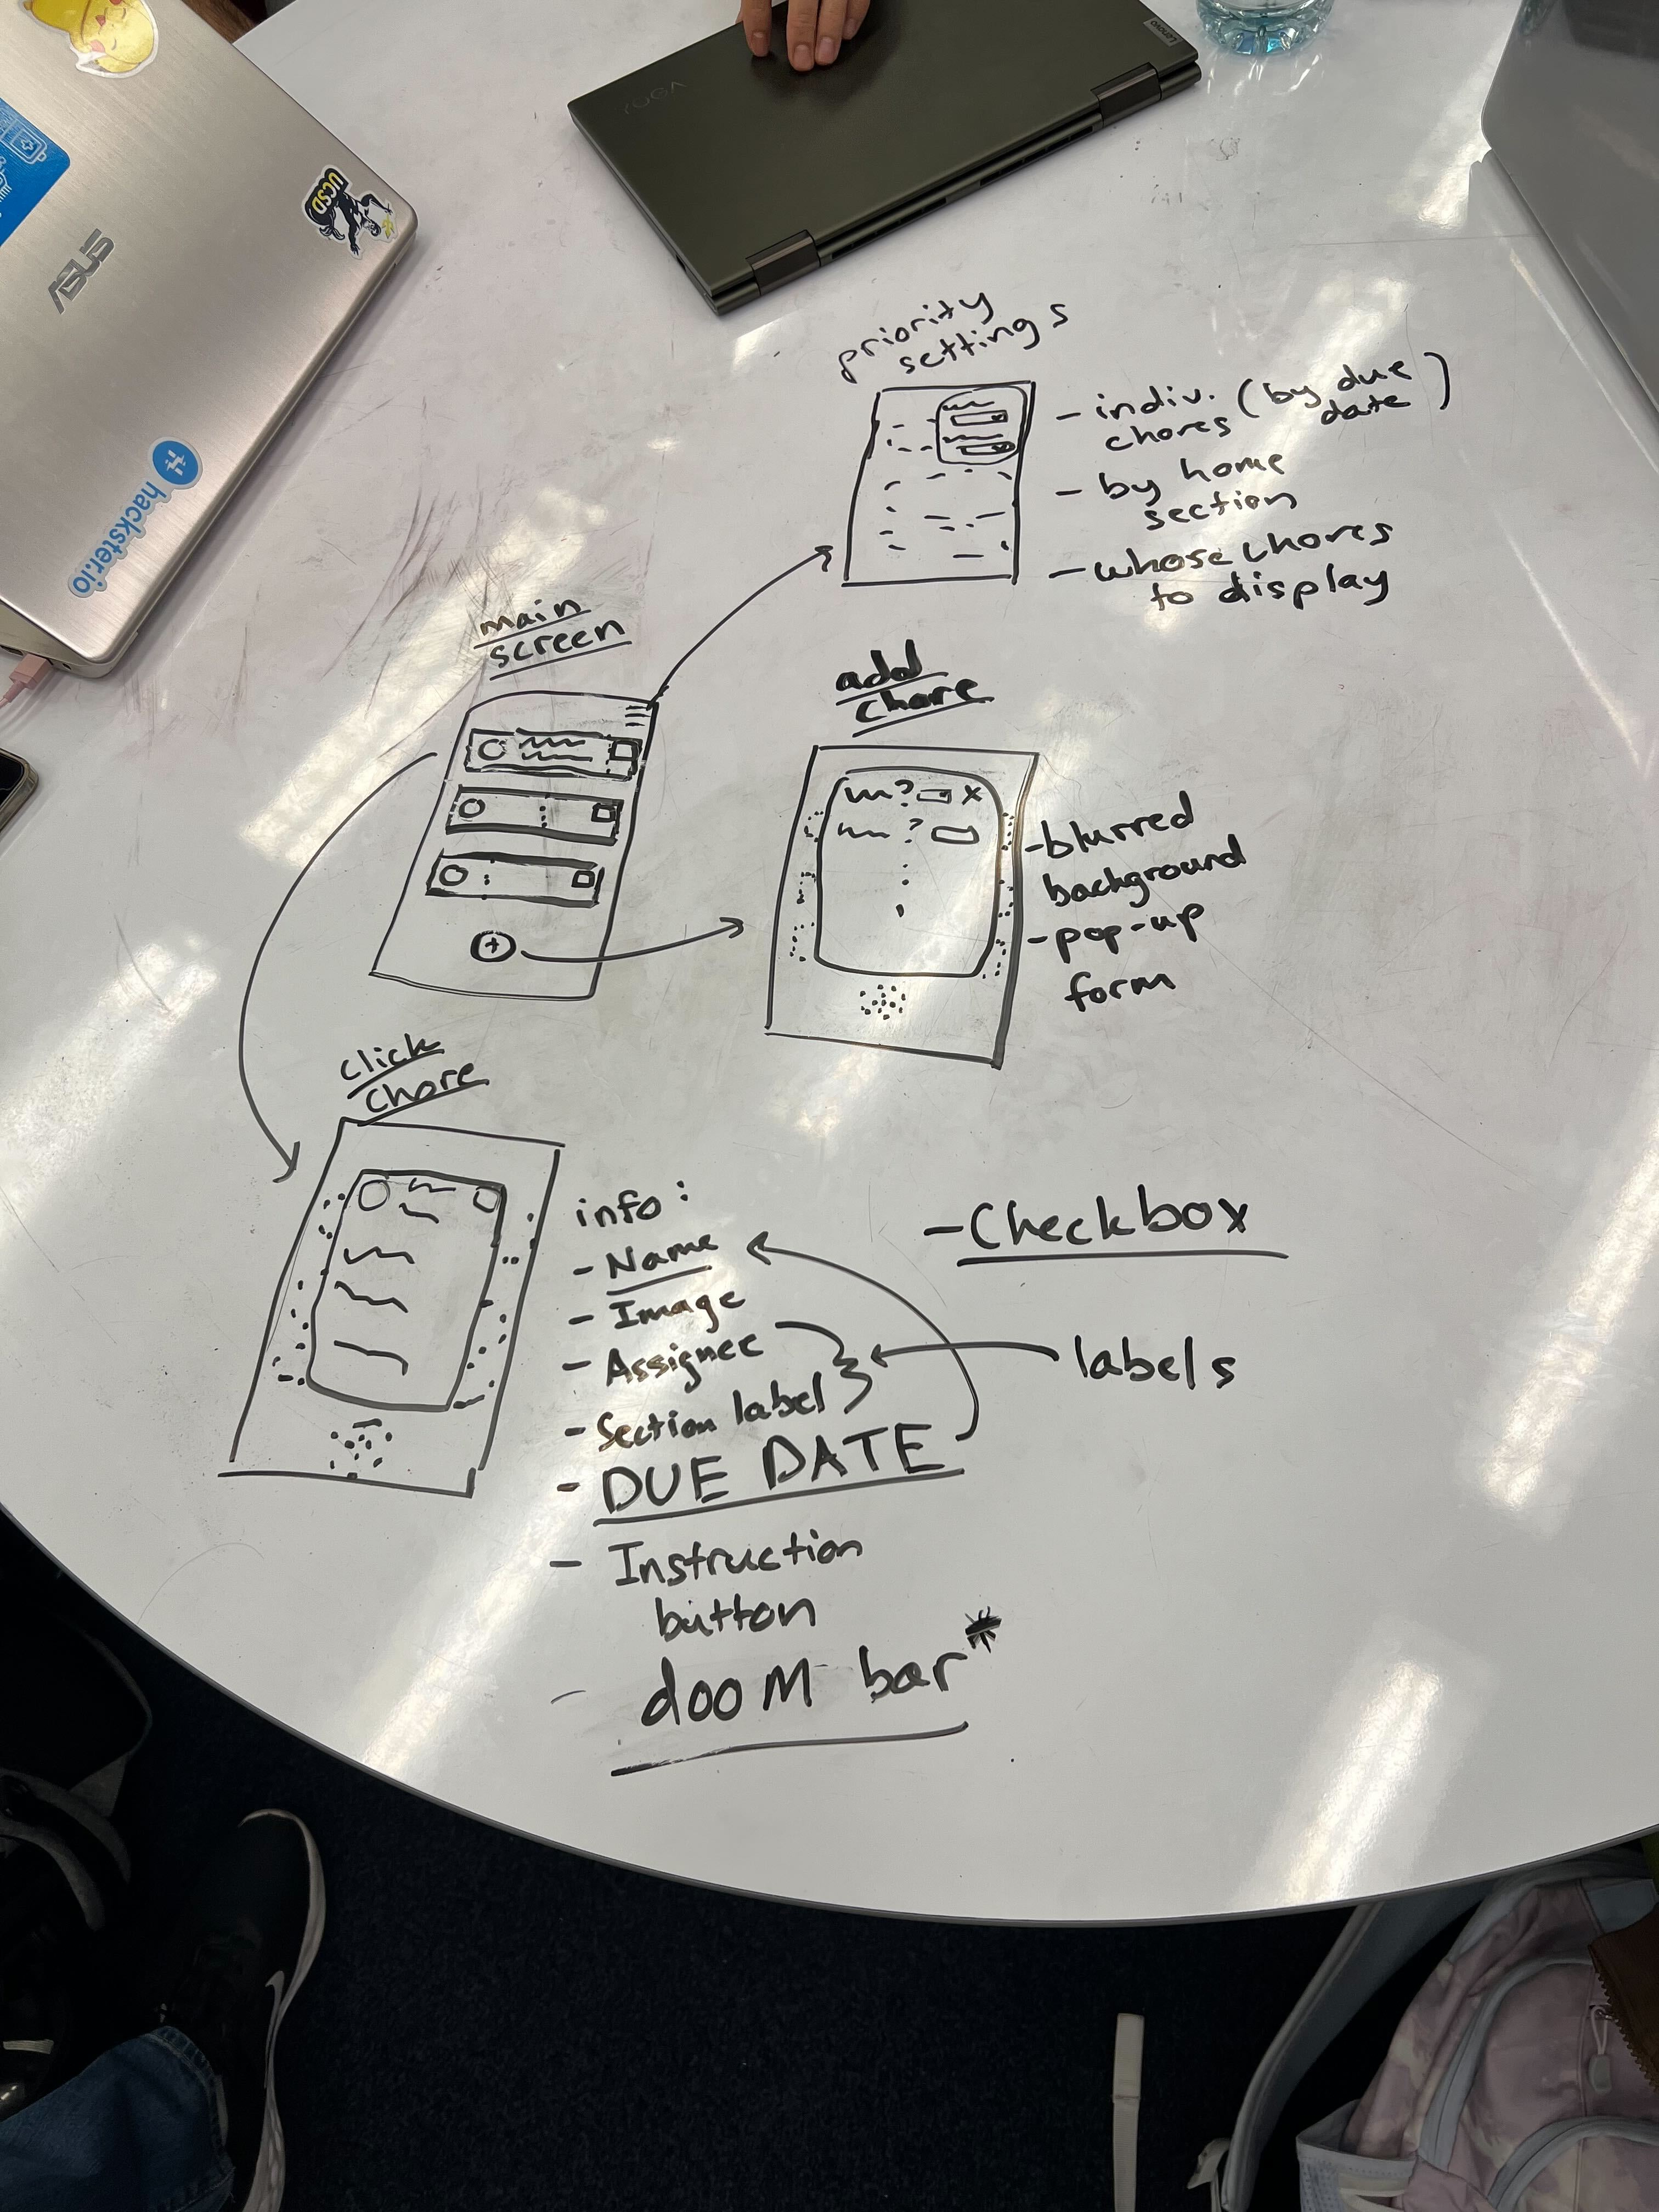 UCSD
ASUS
hackster.io
YOGA
Lenovo
priority
settings
- indiv. (by due
chores date)
- by home
section
- whose chores
to display
main
screen
add
chore
? X
?
- blurred
background
- pop-up
form
click
chore
info:
- Name
- Image
- Assignee
- Section label
- DUE DATE
- Instruction
button
- dooM bar*
- Checkbox
labels